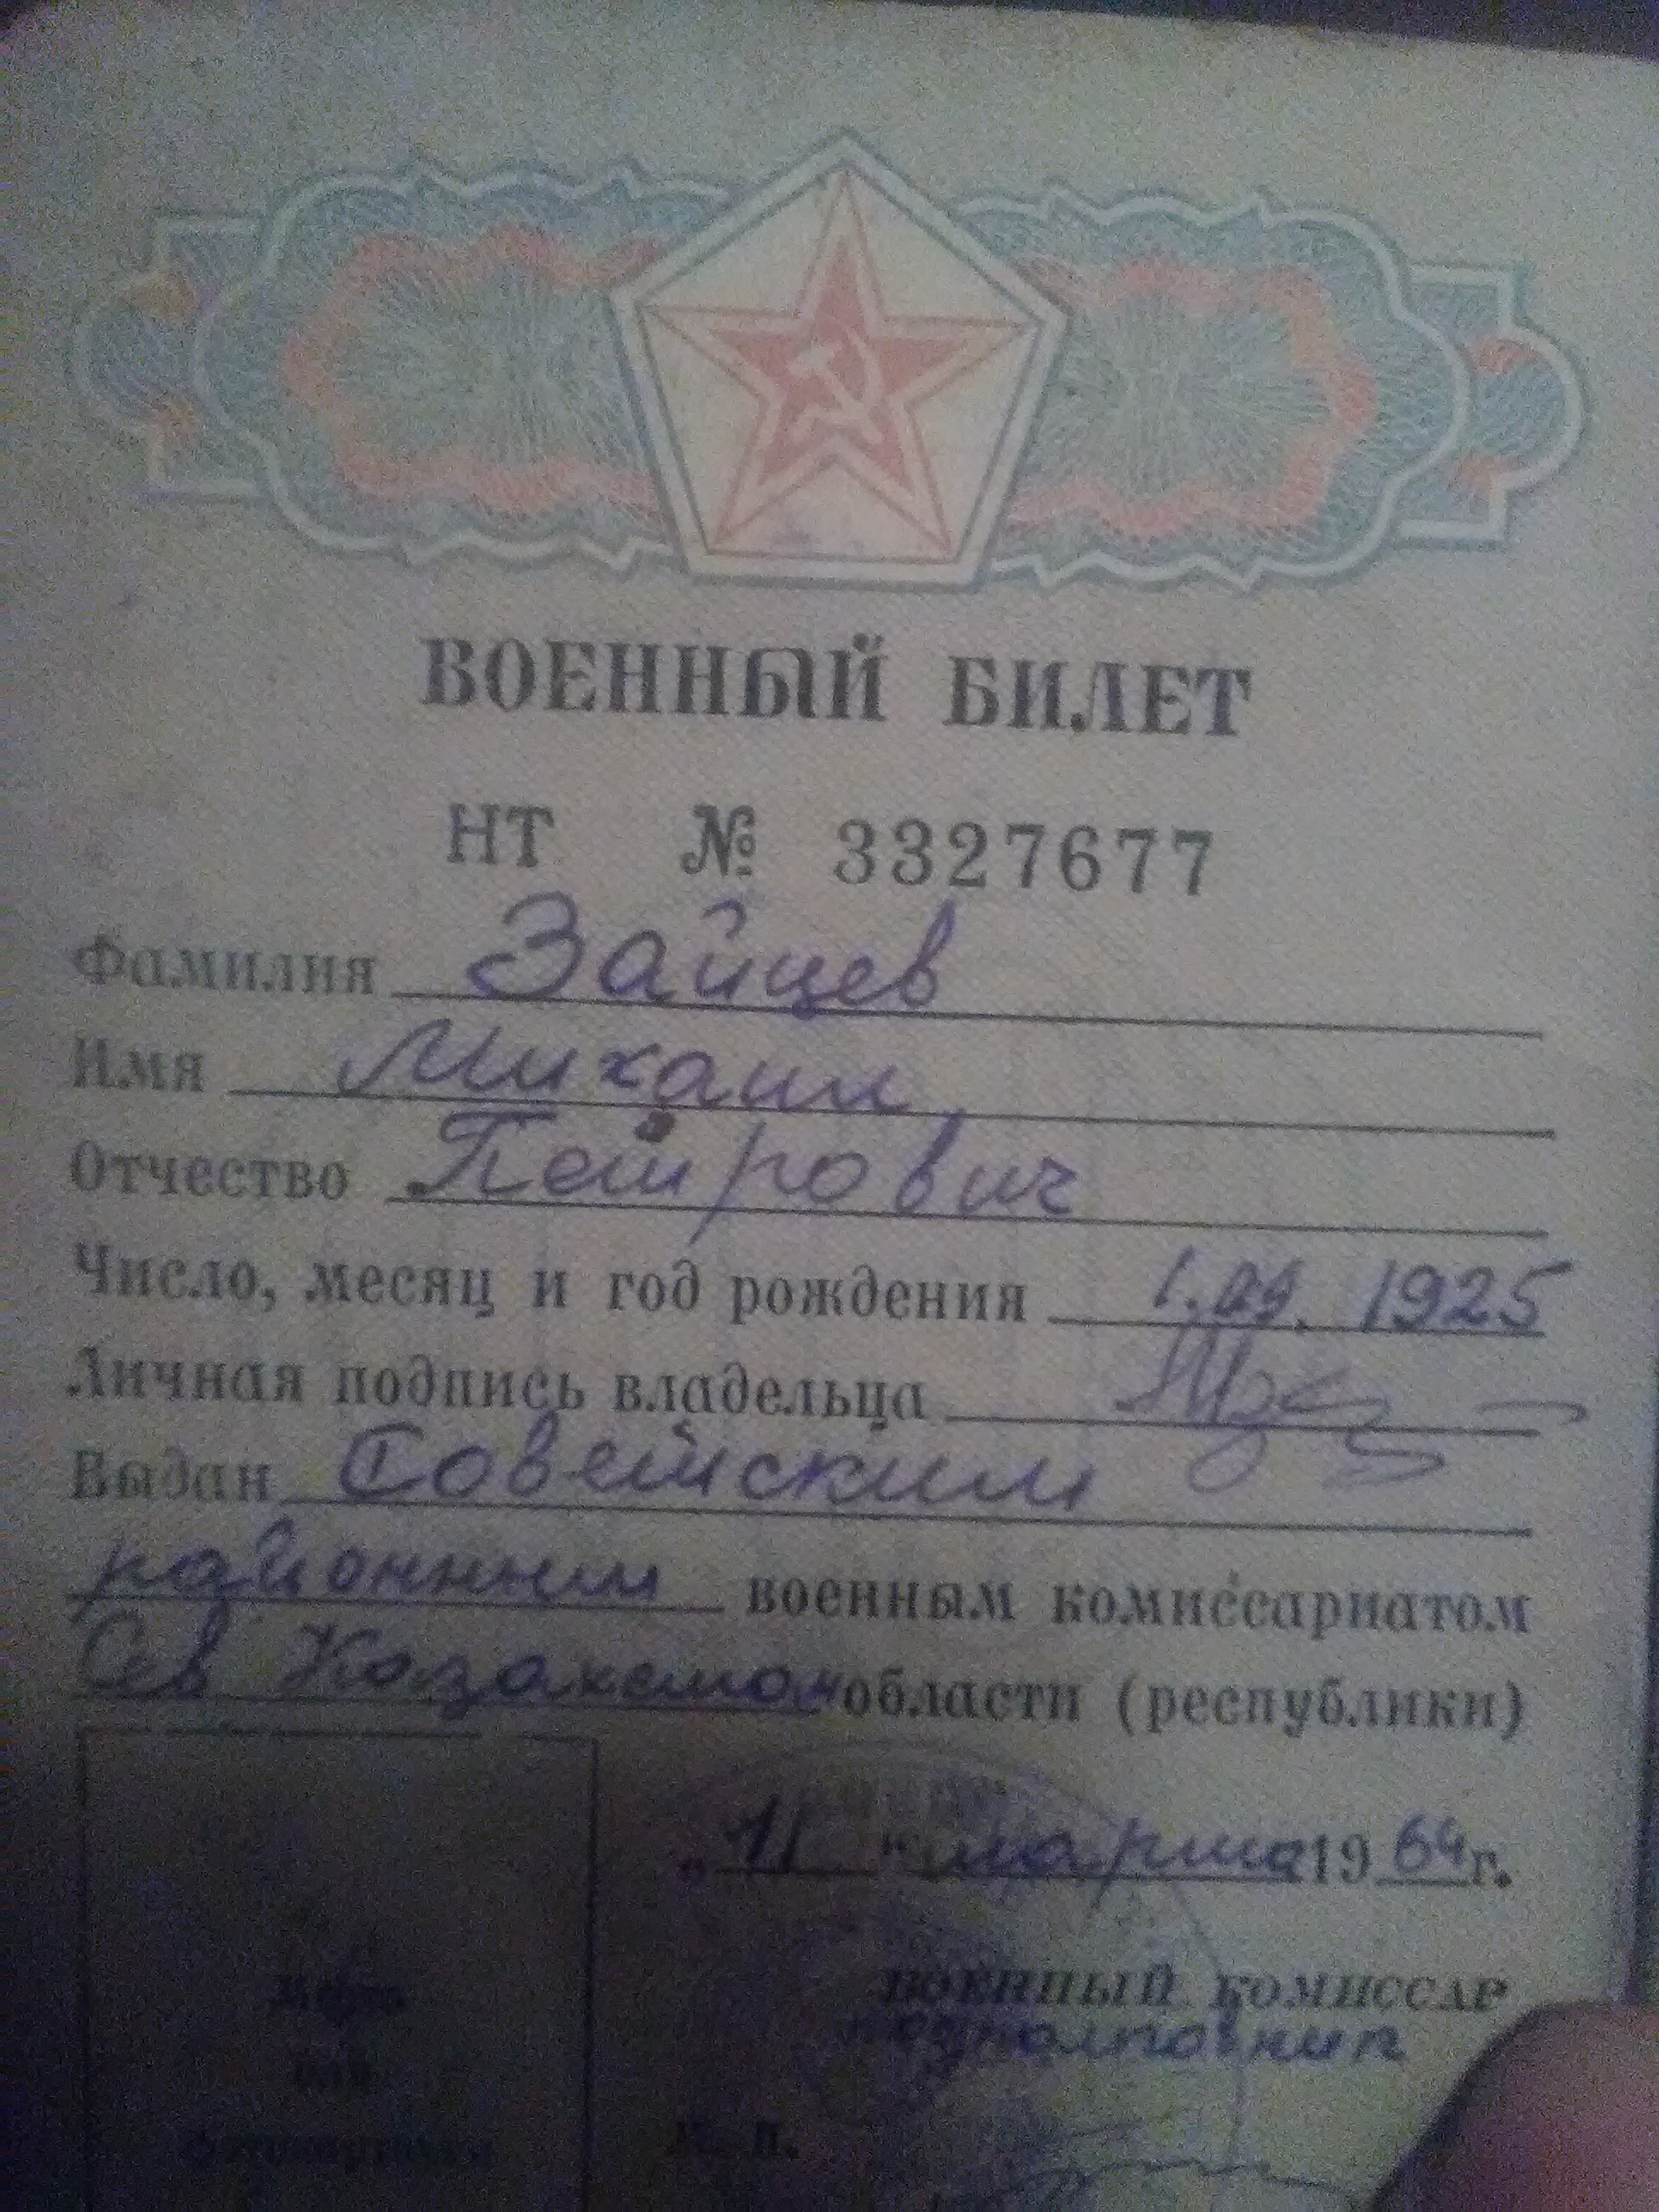 ВОЕННЫЙ БИЛЕТ
НТ № 3327677
Фамилия Зайцев
Имя Михаил
Отчество Петрович
Число, месяц и год рождения 1.09.1925
Личная подпись владельца
Выдан Советским
районным военным комиссариатом
Сев Казахстан области (республики)
„11“ марта 1964 г.
ВОЕННЫЙ КОМИССАР
Место
для
подполковник
фотокарточки
М. П.